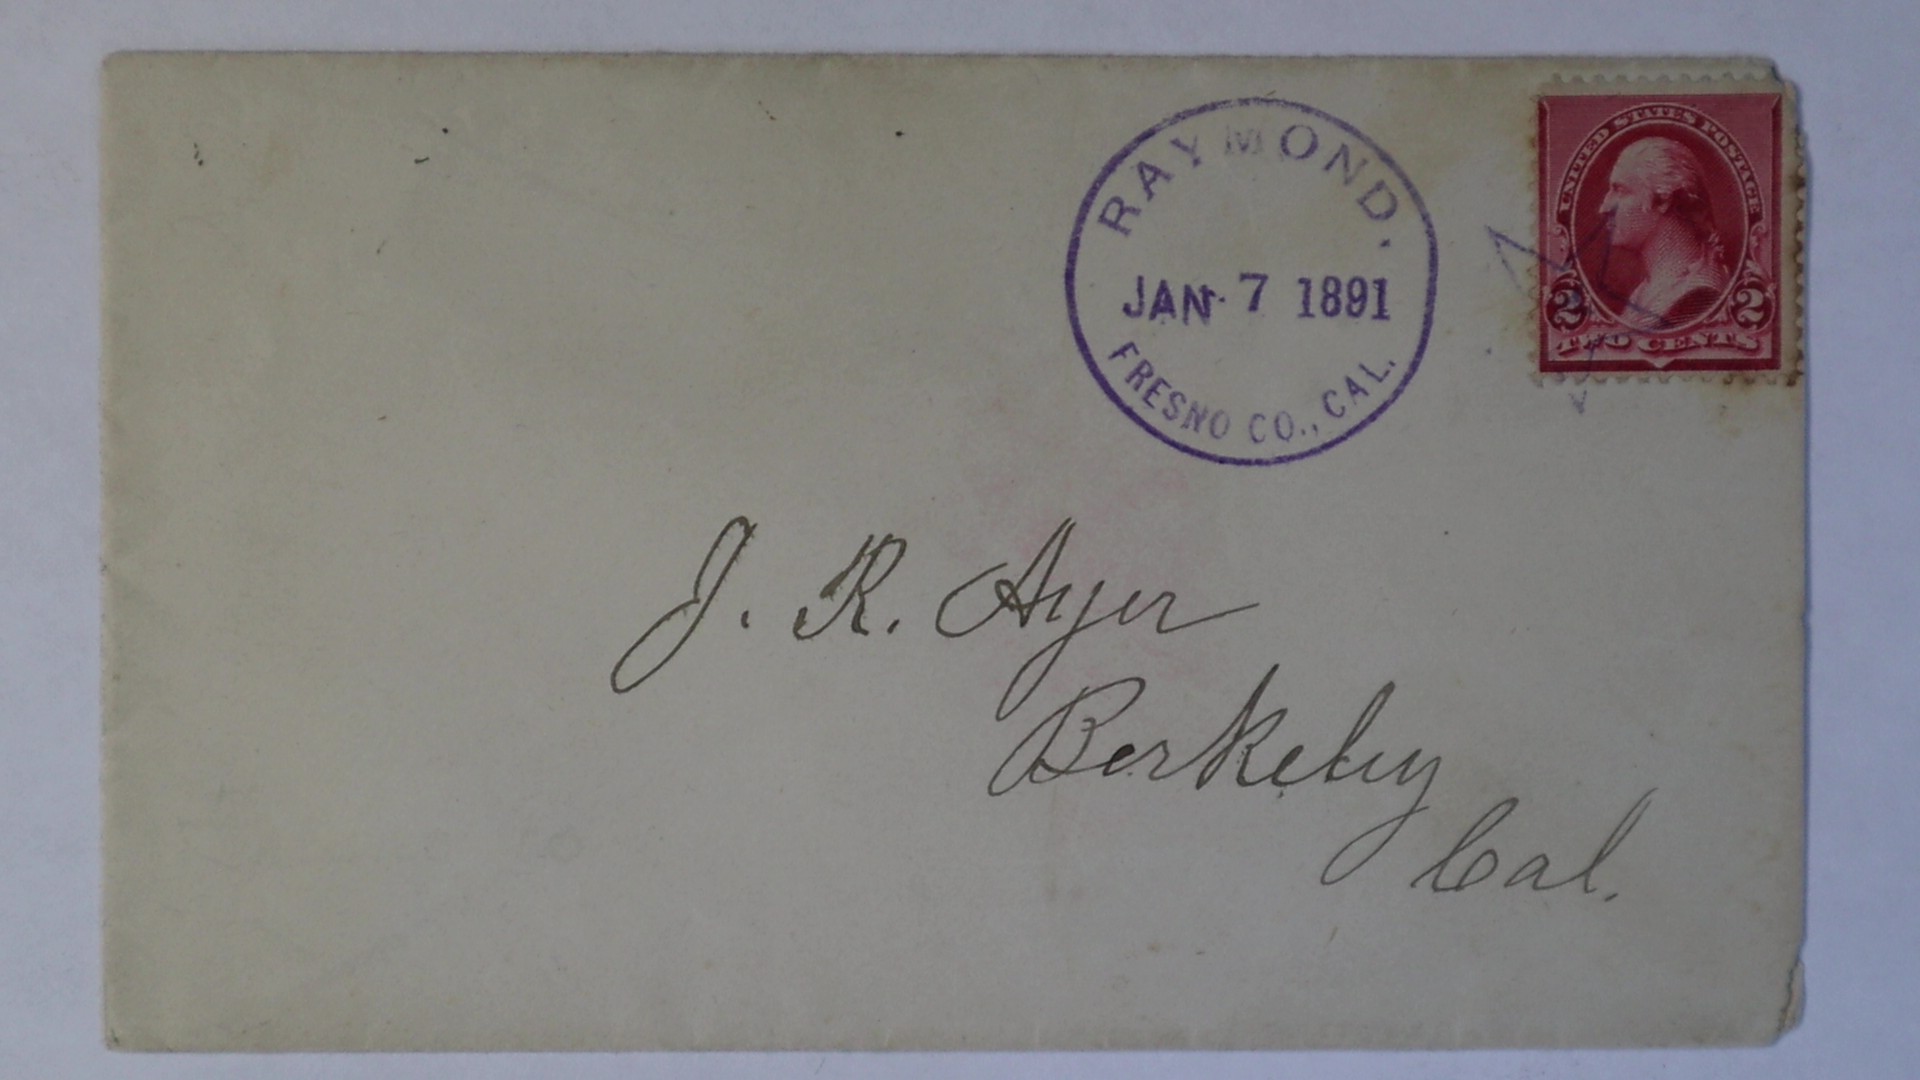 RAYMOND.
JAN 7 1891
FRESNO CO., CAL.
UNITED STATES POSTAGE
2 2
TWO CENTS
J. R. Ayer
Berkeley
Cal.